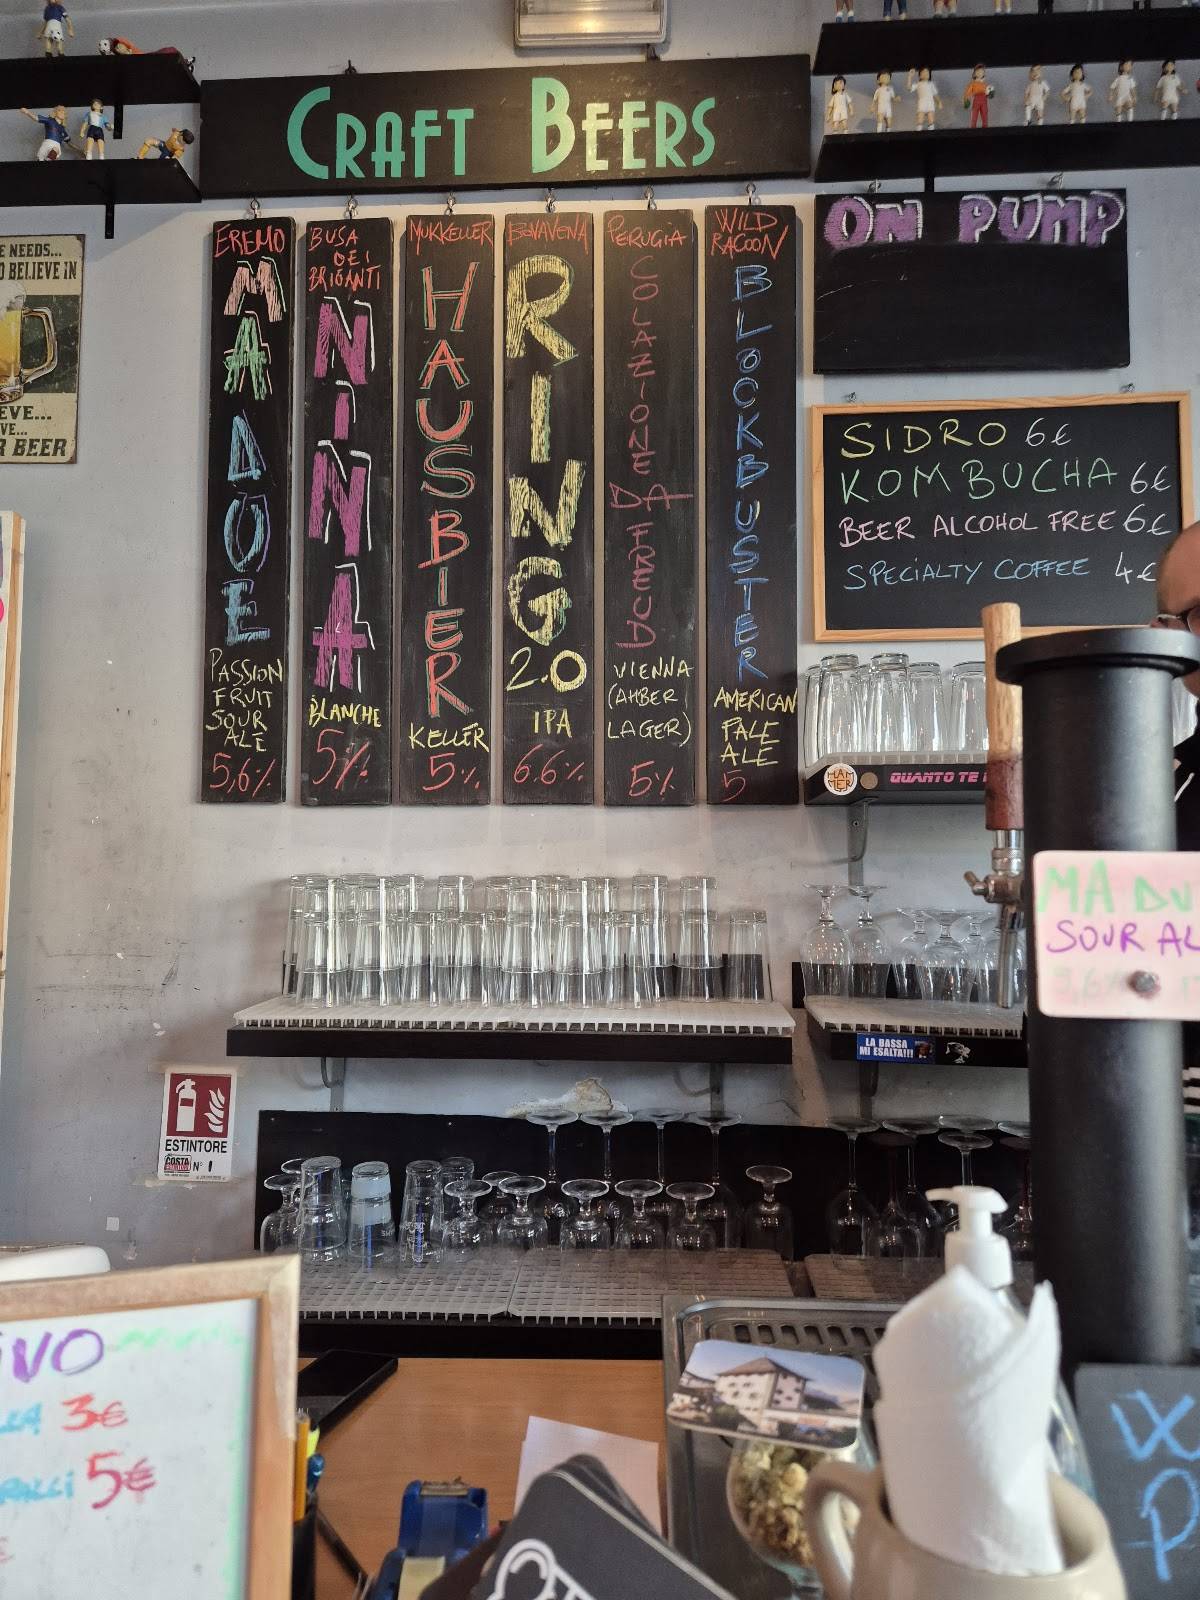 CRAFT BEERS
EREMO
MA
DUE
PASSION
FRUIT
SOUR
ALE
5,6%
BUSA
DEI
BRIGANTI
NINA
BLANCHE
5%
MIKKELLER
HAUSBIER
KELLER
5%
BONAVENA
RINGO
2.0
IPA
6.6%
PERUGIA
COLAZIONE
DA
FREUD
VIENNA
(AMBER
LAGER)
5%
WILD
RACOON
BLOCKBUSTER
AMERICAN
PALE
ALE
5
ON PUMP
SIDRO 6€
KOMBUCHA 6€
BEER ALCOHOL FREE 6€
SPECIALTY COFFEE 4€
E NEEDS...
O BELIEVE IN
EVE...
VE...
R BEER
HAM
MER
QUANTO TE
MA DU
SOUR AL
5,6%
LA BASSA
MI ESALTA!!!
ESTINTORE
COSTA
N° 1
IVO
3€
5€
€